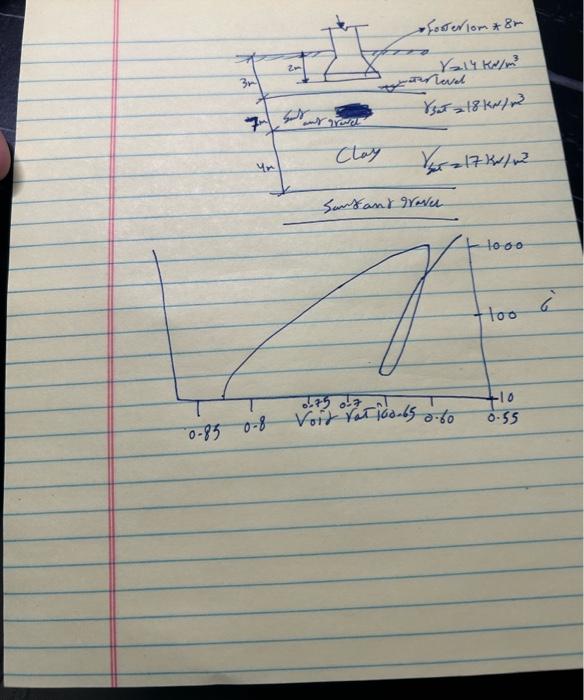 Footer 10m * 8m
2m
γ=14 KN/m³
3m
water level
7m
Sand and gravel
γsat=18 KN/m³
4m
Clay
γsat=17 KN/m³
Sand and gravel
1000
100
10
0.85 0.8 0.75 0.7 0.65 0.60 0.55
Void ratio